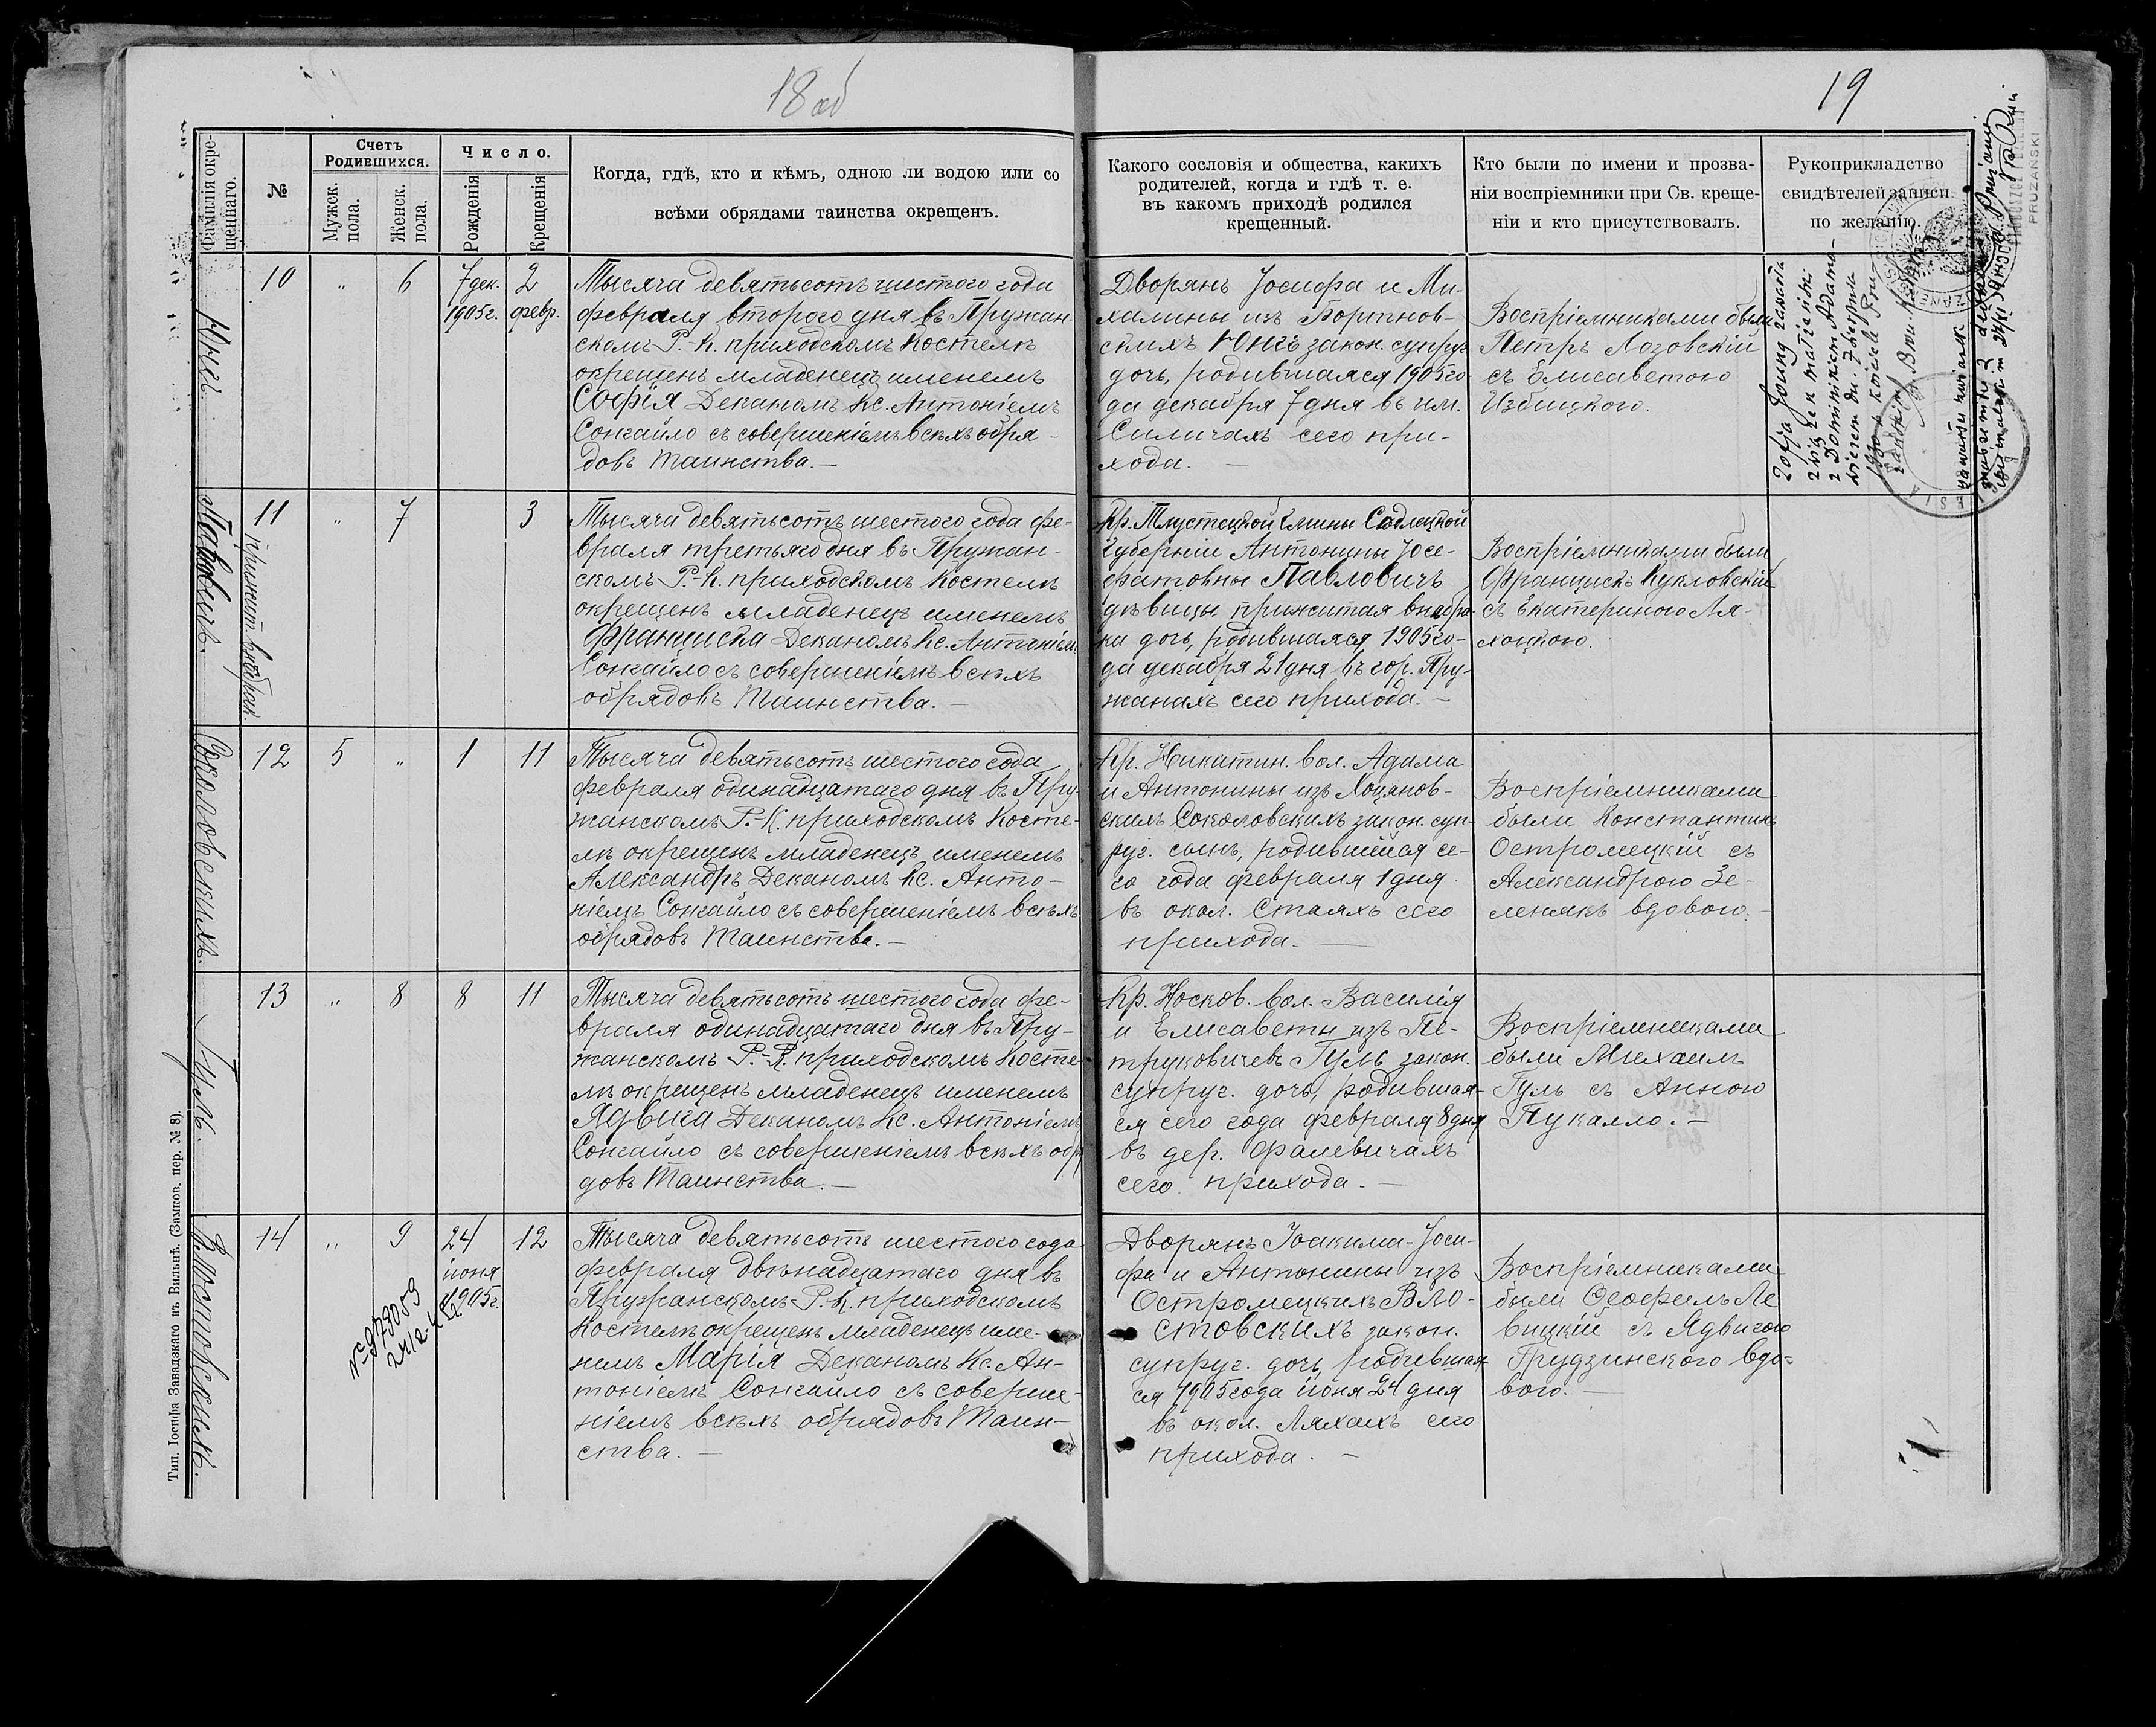 18 об
19
Фамилія окре-
щеннаго.
№
Счетъ
Родившихся.
Мужск.
пола.
Женск.
пола.
Число.
Рожденія
Крещенія
Когда, гдѣ, кто и кѣмъ, одною ли водою или со
всѣми обрядами таинства окрещенъ.
Какого сословія и общества, какихъ
родителей, когда и гдѣ т. е.
въ какомъ приходѣ родился
крещенный.
Кто были по имени и прозва-
ніи воспріемники при Св. креще-
ніи и кто присутствовалъ.
Рукоприкладство
свидѣтелей записи
по желанію.
Юнгъ.
10
"
6
7 дек.
1905 г.
2
февр.
Тысяча девятьсотъ шестого года
февраля второго дня въ Пружан-
скомъ Р.-К. приходскомъ Костелѣ
окрещенъ младенецъ именемъ
Софія Деканомъ Кс. Антоніемъ
Сонгайло съ совершеніемъ всѣхъ обря-
довъ Таинства. —
Дворянъ Іосифа и Ми-
халины изъ
скихъ Юнгъ закон. супруг.
дочь, родившаяся 1905 го-
да декабря 7 дня въ им.
Силичахъ сего при-
хода. —
Воспріемниками были
Петръ Лозовскій
съ Елисаветою
Избицкою.
Zofja Joung zawarła
związek małżeński
z Dominikiem Adamo-
wiczem dn. 7 sierpnia
w kościele Pru-
Павловичъ.
11
прижит. внѣбрач.
"
7
3
Тысяча девятьсотъ шестого года фе-
враля третьяго дня въ Пружан-
скомъ Р.-К. приходскомъ Костелѣ
окрещенъ младенецъ именемъ
Франциска Деканомъ Кс. Антоніемъ
Сонгайло съ совершеніемъ всѣхъ
обрядовъ Таинства. —
Кр. Тлустецкой гмины Сѣдлецкой
губерніи Антонины Іосе-
фатовны Павловичъ
дѣвицы прижитая внѣбра-
ка дочь, родившаяся 1905 го-
да декабря 21 дня въ гор. Пру-
жанахъ сего прихода. —
Воспріемниками были
Францискъ Кукловскій
съ Екатериною Ля-
хоцкою.
Соколовскихъ.
12
5
"
1
11
Тысяча девятьсотъ шестого года
февраля одинадцатаго дня въ Пру-
жанскомъ Р.-К. приходскомъ Косте-
лѣ окрещенъ младенецъ именемъ
Александръ Деканомъ Кс. Анто-
ніемъ Сонгайло съ совершеніемъ всѣхъ
обрядовъ Таинства. —
Кр. Никитин. вол. Адама
и Антонины изъ Хоцянов-
скихъ Соколовскихъ закон. суп-
руг. сынъ, родившійся се-
го года февраля 1 дня
въ окол. Стаяхъ сего
прихода. —
Воспріемниками
были Константинъ
Остромецкій съ
Александрою Зе-
ленякъ вдовою. —
Гуль.
13
"
8
8
11
Тысяча девятьсотъ шестого года фе-
враля одинадцатаго дня въ Пру-
жанскомъ Р.-К. приходскомъ Косте-
лѣ окрещенъ младенецъ именемъ
Ядвига Деканомъ Кс. Антоніемъ
Сонгайло съ совершеніемъ всѣхъ обря
довъ Таинства. —
Кр. Носков. вол. Василія
и Елисаветы изъ Пе-
труковичевъ Гуль закон.
супруг. дочь, родившая-
ся сего года февраля 8 дня
въ дер. Фалевичахъ
сего прихода. —
Воспріемниками
были Михаилъ
Гуль съ Анною
Пукалло. —
Влостовскихъ.
14
"
9
24
іюня
1905 г.
12
Тысяча девятьсотъ шестого года
февраля двѣнадцатаго дня въ
Пружанскомъ Р.-К. приходскомъ
Костелѣ окрещенъ младенецъ име-
немъ Марія Деканомъ Кс. Ан-
тоніемъ Сонгайло съ соверше-
ніемъ всѣхъ обрядовъ Таин-
ства. —
Дворянъ Іоакима-Іоси-
фа и Антонины изъ
Остромецкихъ Вло-
стовскихъ закон.
супруг. дочь, родившая-
ся 1905 года іюня 24 дня
въ окол. Ляхахъ сего
прихода. —
Воспріемниками
были Ѳеофилъ Ле
вицкій съ Ядвигою
Грудзинскою вдо-
вою. —
Тип. Іосифа Завадзкаго въ Вильнѣ. (Замков. пер. № 8).